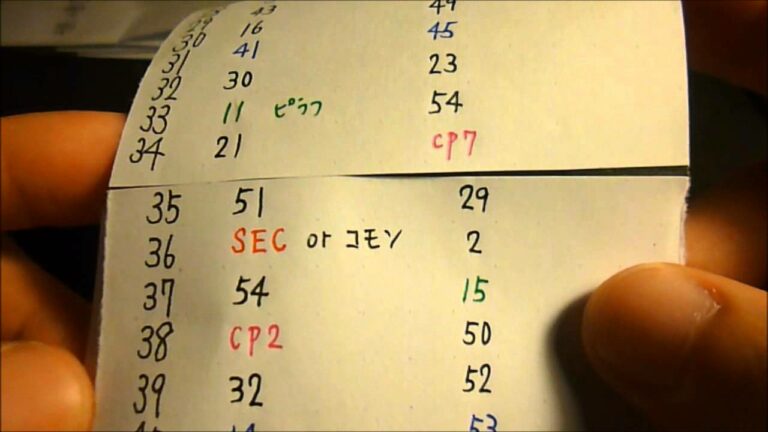 29 43 49
30 16 45
31 41 23
32 30 54
33 11 ピラフ CP7
34 21
35 51 29
36 SEC or コモン 2
37 54 15
38 CP2 50
39 32 52
53